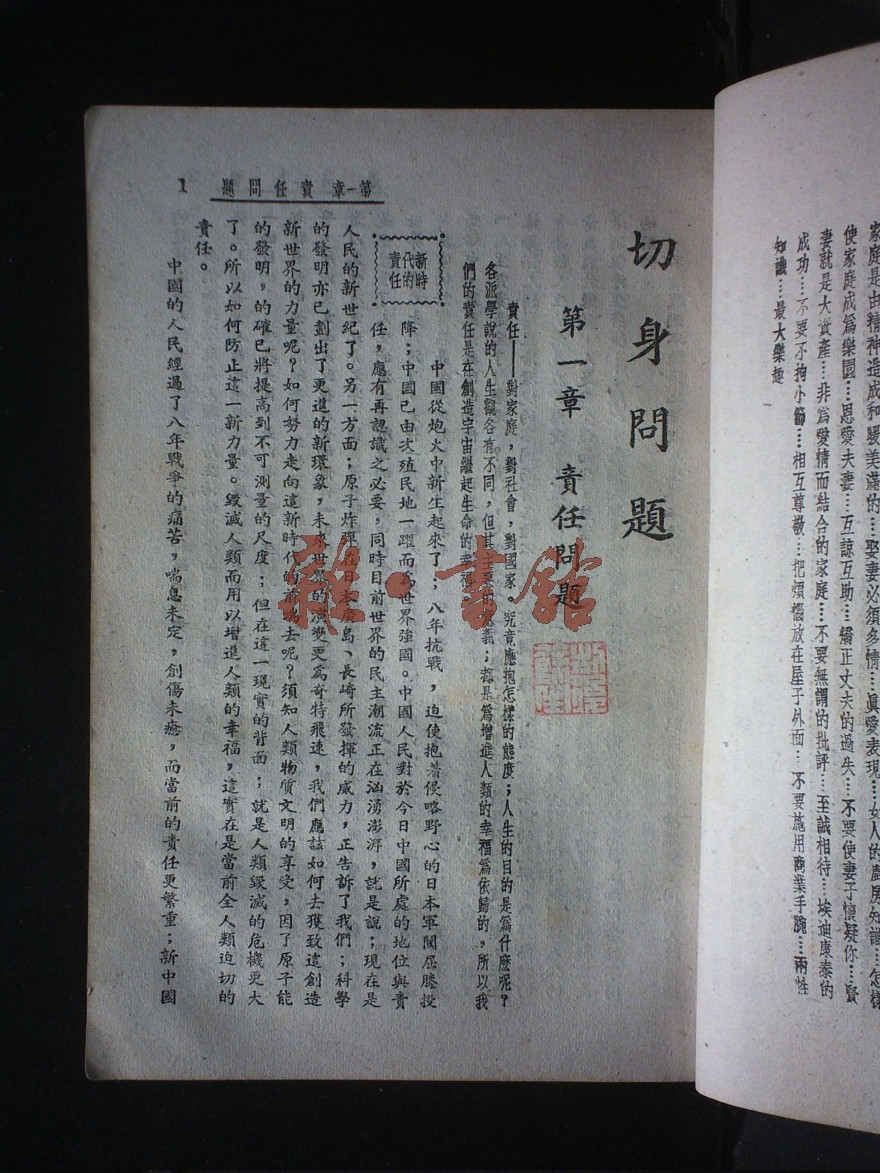 家庭是由精神造成和暖美滿的…娶妻必須多情…眞愛表現…女人的廚房知識…怎樣
使家庭成爲樂園…恩愛夫妻…互諒互助…矯正丈夫的過失…不要使妻子懷疑你…賢
妻就是大資產…非爲愛情而結合的家庭…不要無謂的批評…至誠相待…埃迪康泰的
成功…不要不拘小節…相互尊敬…把煩惱放在屋子外面…不要施用商業手腕…兩性
知識…最大樂趣
切身問題
第一章 責任問題
責任——對家庭,對社會,對國家。究竟應抱怎樣的態度;人生的目的是爲什麽呢?
各派學說的人生觀各有不同,但其主要的意義;都是爲增進人類的幸福爲依歸的,所以我
們的責任是在創造宇宙繼起生命的幸福
新時代的責任
中國從炮火中新生起來了;八年抗戰,迫使抱著侵略野心的日本軍閥屈膝投
降;中國已由次殖民地一躍而爲世界強國。中國人民對於今日中國所處的地位與責
任,應有再認識之必要,同時目前世界的民主潮流正在洶湧澎湃,就是說;現在是
人民的新世紀了。另一方面;原子炸彈在日本廣島、長崎所發揮的威力,正告訴了我們;科學
的發明亦已劃出了更進的新環象,未來世界的演變更爲奇特飛速,我們應該如何去獲致這創造
新世界的力量呢?如何努力走向這新時代的前端去呢?須知人類物質文明的享受,因了原子能
的發明,的確已將提高到不可測量的尺度;但在這一現實的背面;就是人類毀滅的危機更大
了。所以如何防止這一新力量。毀滅人類而用以增進人類的幸福,這實在是當前全人類迫切的
責任。
中國的人民經過了八年戰爭的痛苦,喘息未定,創傷未癒,而當前的責任更繁重;新中國
第一章 責任問題 1
雜·書館